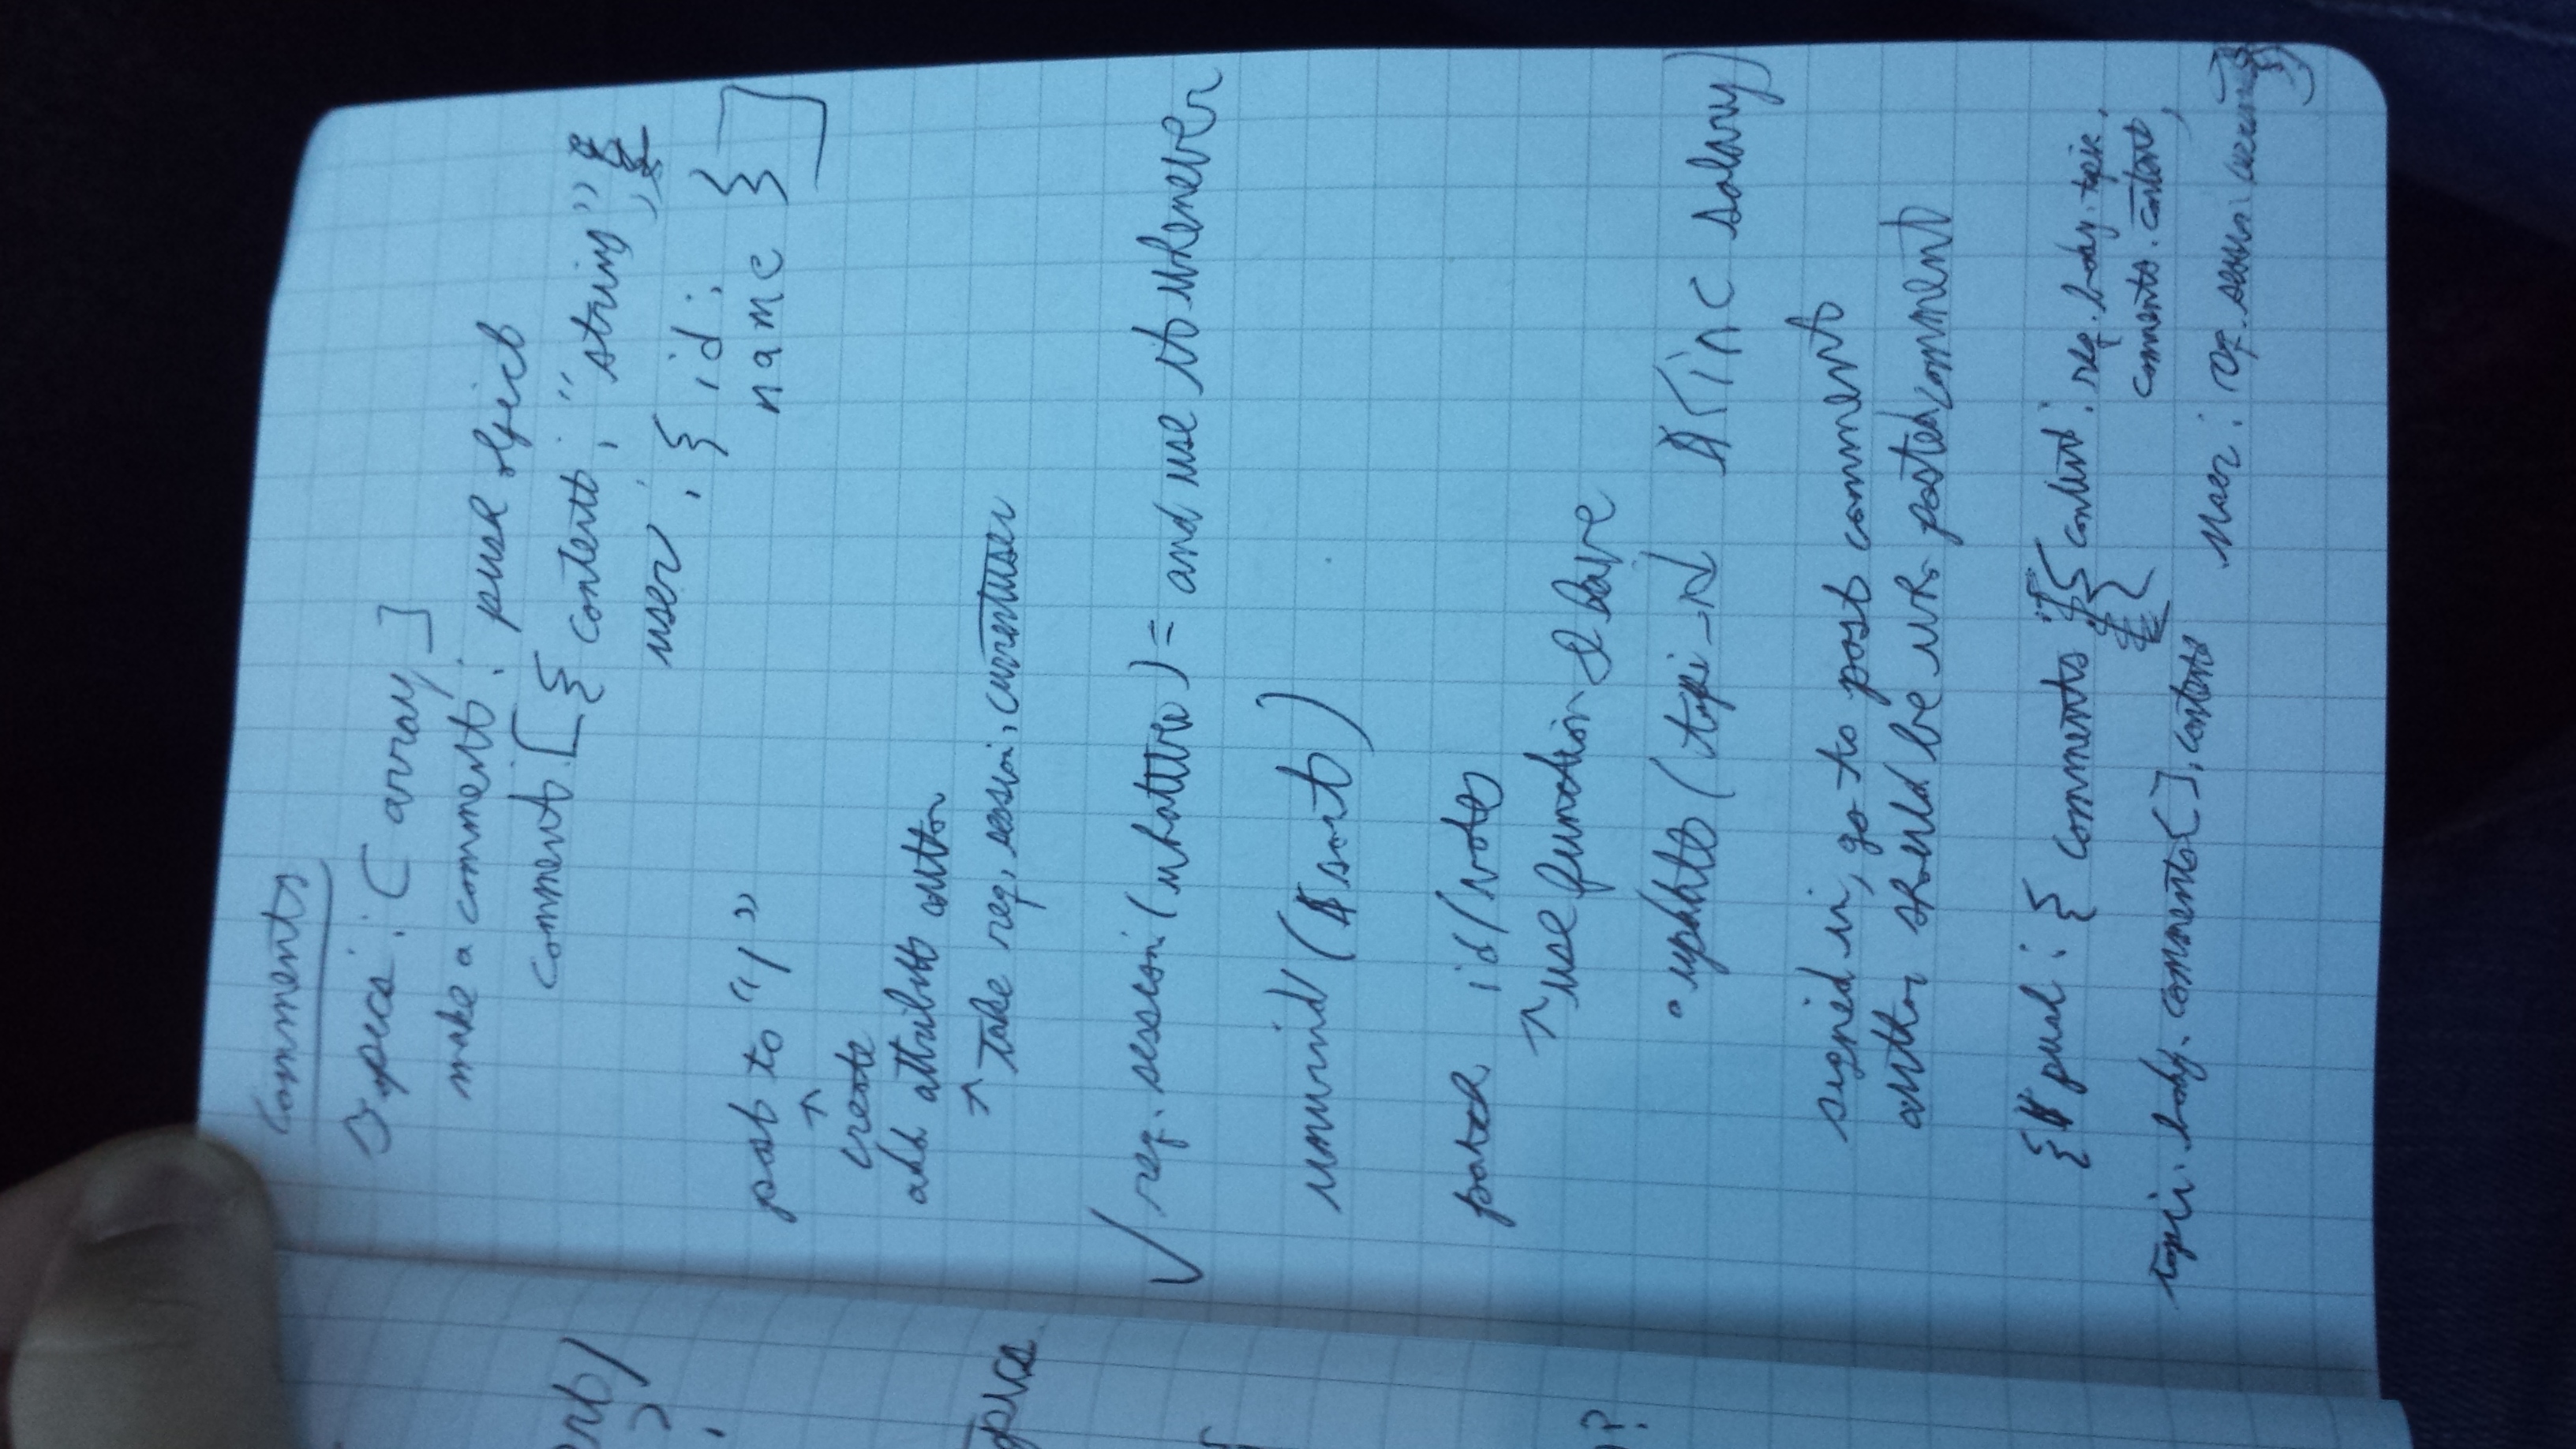 comments
Topics : [ array ]
make a comment : push object
comment [ { content : "string",
user : { id :
name } ]
post to "/"
↑
create
add attribute author
↑ take req. session. currentuser
✓ req. session (whatever) = and use it whenever
unwind ($sort)
patch id/votes
↑ use function I have
• update ( topic_id $inc salary)
signed in, go to post comment
author should be who posted comment
{$push : { comments : { content : req. body. topic.
comments. content,
topic. body. comments[]. content
user : req. session
erb/
?
opics.
?